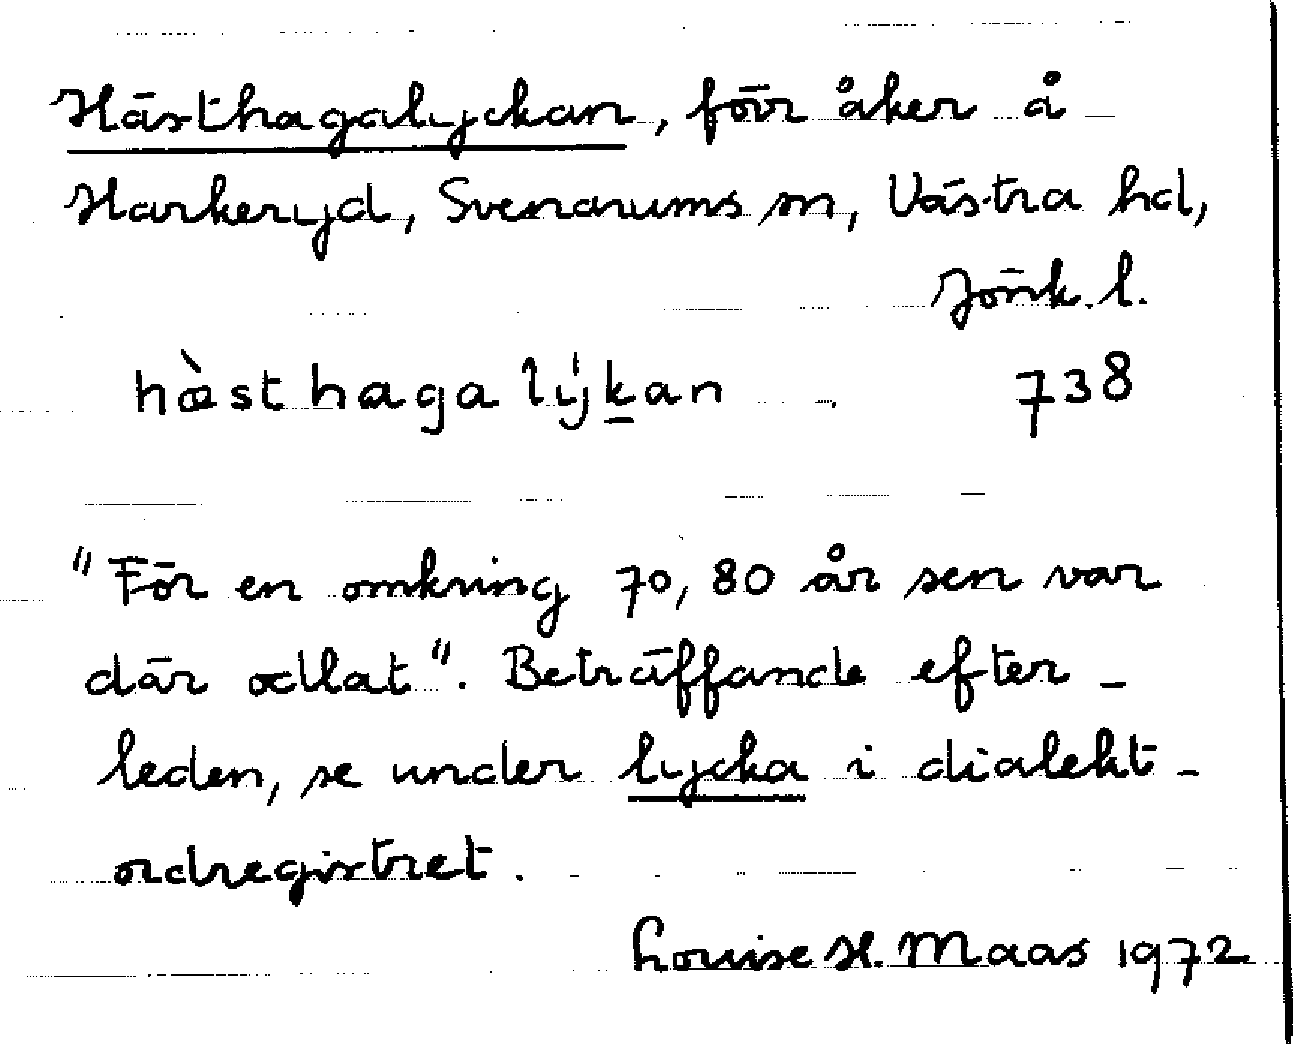 Hästhagalyckan, förr åker å
Harkeryd, Svenarums sn, Västra hd,
Jönk. l.
hæ̀sthagalẏk̠an 738
"För en omkring 70, 80 år sen var
där odlat". Beträffande efter-
leden, se under lycka i dialekt-
ordregistret.
Louise H. Maas 1972